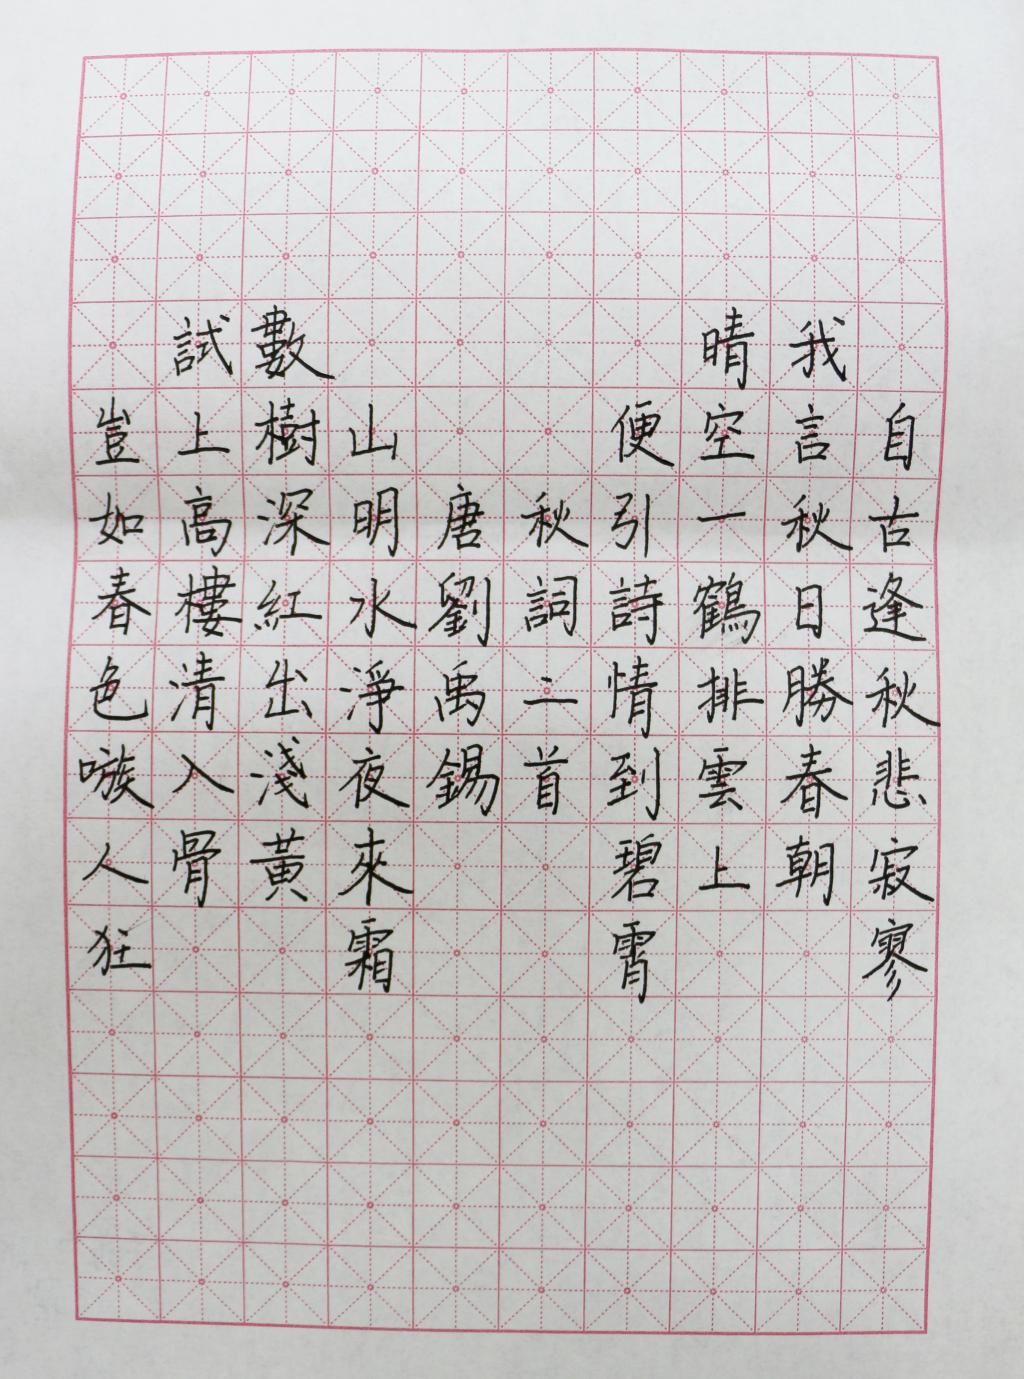 自古逢秋悲寂寥
我言秋日勝春朝
晴空一鶴排雲上
便引詩情到碧霄
秋詞二首
唐劉禹錫
山明水淨夜來霜
數樹深紅出淺黃
試上高樓清入骨
豈如春色嗾人狂